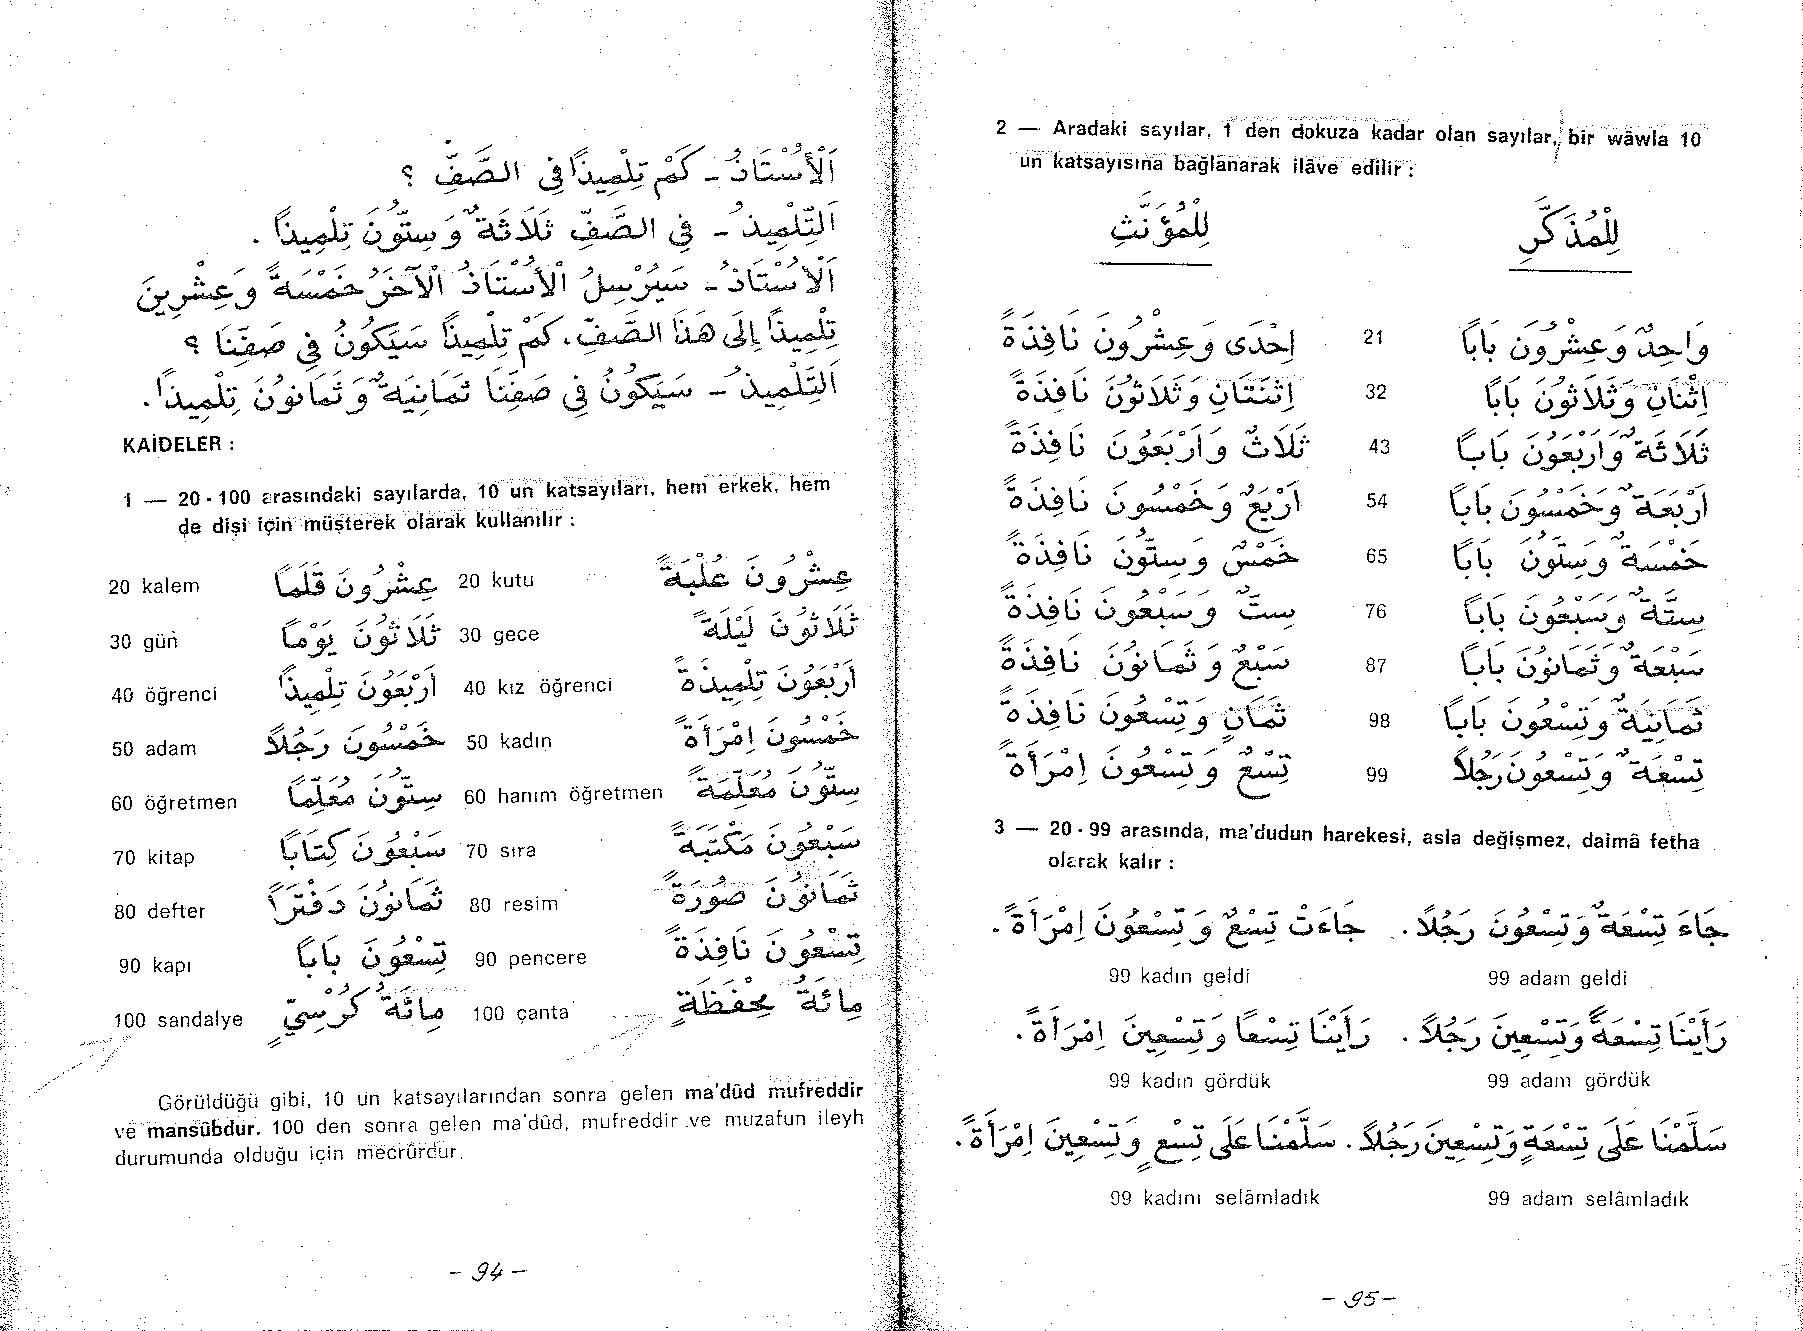 اَلْأُسْتَاذُ ـ كَمْ تِلْمِيذًا فِي الصَّفِّ ؟
اَلتِّلْمِيذُ ـ فِي الصَّفِّ ثَلَاثَةٌ وَسِتُّونَ تِلْمِيذًا .
اَلْاُسْتَاذُ ـ سَيُرْسِلُ الْأُسْتَاذُ الْآخَرُ خَمْسَةً وَعِشْرِينَ
تِلْمِيذًا إِلَى هَذَا الصَّفِّ . كَمْ تِلْمِيذًا سَيَكُونُ فِي صَفِّنَا ؟
اَلتِّلْمِيذُ ـ سَيَكُونُ فِي صَفِّنَا ثَمَانِيَةٌ وَثَمَانُونَ تِلْمِيذًا .
KAİDELER :
1 — 20 - 100 arasındaki sayılarda, 10 un katsayıları, hem erkek, hem
de dişi için müşterek olarak kullanılır :
20 kalem عِشْرُونَ قَلَمًا 20 kutu عِشْرُونَ عُلْبَةً
30 gün ثَلَاثُونَ يَوْمًا 30 gece ثَلَاثُونَ لَيْلَةً
40 öğrenci أَرْبَعُونَ تِلْمِيذًا 40 kız öğrenci أَرْبَعُونَ تِلْمِيذَةً
50 adam خَمْسُونَ رَجُلًا 50 kadın خَمْسُونَ اِمْرَأَةً
60 öğretmen سِتُّونَ مُعَلِّمًا 60 hanım öğretmen سِتُّونَ مُعَلِّمَةً
70 kitap سَبْعُونَ كِتَابًا 70 sıra سَبْعُونَ مَكْتَبَةً
80 defter ثَمَانُونَ دَفْتَرًا 80 resim ثَمَانُونَ صُورَةً
90 kapı تِسْعُونَ بَابًا 90 pencere تِسْعُونَ نَافِذَةً
100 sandalye مِائَةُ كُرْسِيٍّ 100 çanta مِائَةُ مِحْفَظَةٍ
Görüldüğü gibi, 10 un katsayılarından sonra gelen ma'dûd mufreddir
ve mansûbdur. 100 den sonra gelen ma'dûd, mufreddir ve muzafun ileyh
durumunda olduğu için mecrûrdur.
- 94 -
2 — Aradaki sayılar, 1 den dokuza kadar olan sayılar, bir wâwla 10
un katsayısına bağlanarak ilâve edilir :
لِلْمُذَكَّرِ لِلْمُؤَنَّثِ
وَاحِدٌ وَعِشْرُونَ بَابًا 21 اِحْدَى وَعِشْرُونَ نَافِذَةً
اِثْنَانِ وَثَلَاثُونَ بَابًا 32 اِثْنَتَانِ وَثَلَاثُونَ نَافِذَةً
ثَلَاثَةٌ وَاَرْبَعُونَ بَابًا 43 ثَلَاثٌ وَاَرْبَعُونَ نَافِذَةً
اَرْبَعَةٌ وَخَمْسُونَ بَابًا 54 اَرْبَعٌ وَخَمْسُونَ نَافِذَةً
خَمْسَةٌ وَسِتُّونَ بَابًا 65 خَمْسٌ وَسِتُّونَ نَافِذَةً
سِتَّةٌ وَسَبْعُونَ بَابًا 76 سِتٌّ وَسَبْعُونَ نَافِذَةً
سَبْعَةٌ وَثَمَانُونَ بَابًا 87 سَبْعٌ وَثَمَانُونَ نَافِذَةً
ثَمَانِيَةٌ وَتِسْعُونَ بَابًا 98 ثَمَانٍ وَتِسْعُونَ نَافِذَةً
تِسْعَةٌ وَتِسْعُونَ رَجُلًا 99 تِسْعٌ وَتِسْعُونَ اِمْرَأَةً
3 — 20 - 99 arasında, ma'dudun harekesi, asla değişmez, daimâ fetha
olarak kalır :
جَاءَ تِسْعَةٌ وَتِسْعُونَ رَجُلًا . جَاءَتْ تِسْعٌ وَتِسْعُونَ اِمْرَأَةً .
99 kadın geldi 99 adam geldi
رَأَيْنَا تِسْعَةً وَتِسْعِينَ رَجُلًا . رَأَيْنَا تِسْعًا وَتِسْعِينَ اِمْرَأَةً .
99 kadın gördük 99 adam gördük
سَلَّمْنَا عَلَى تِسْعَةٍ وَتِسْعِينَ رَجُلًا . سَلَّمْنَا عَلَى تِسْعٍ وَتِسْعِينَ اِمْرَأَةً .
99 kadını selâmladık 99 adam selâmladık
- 95 -